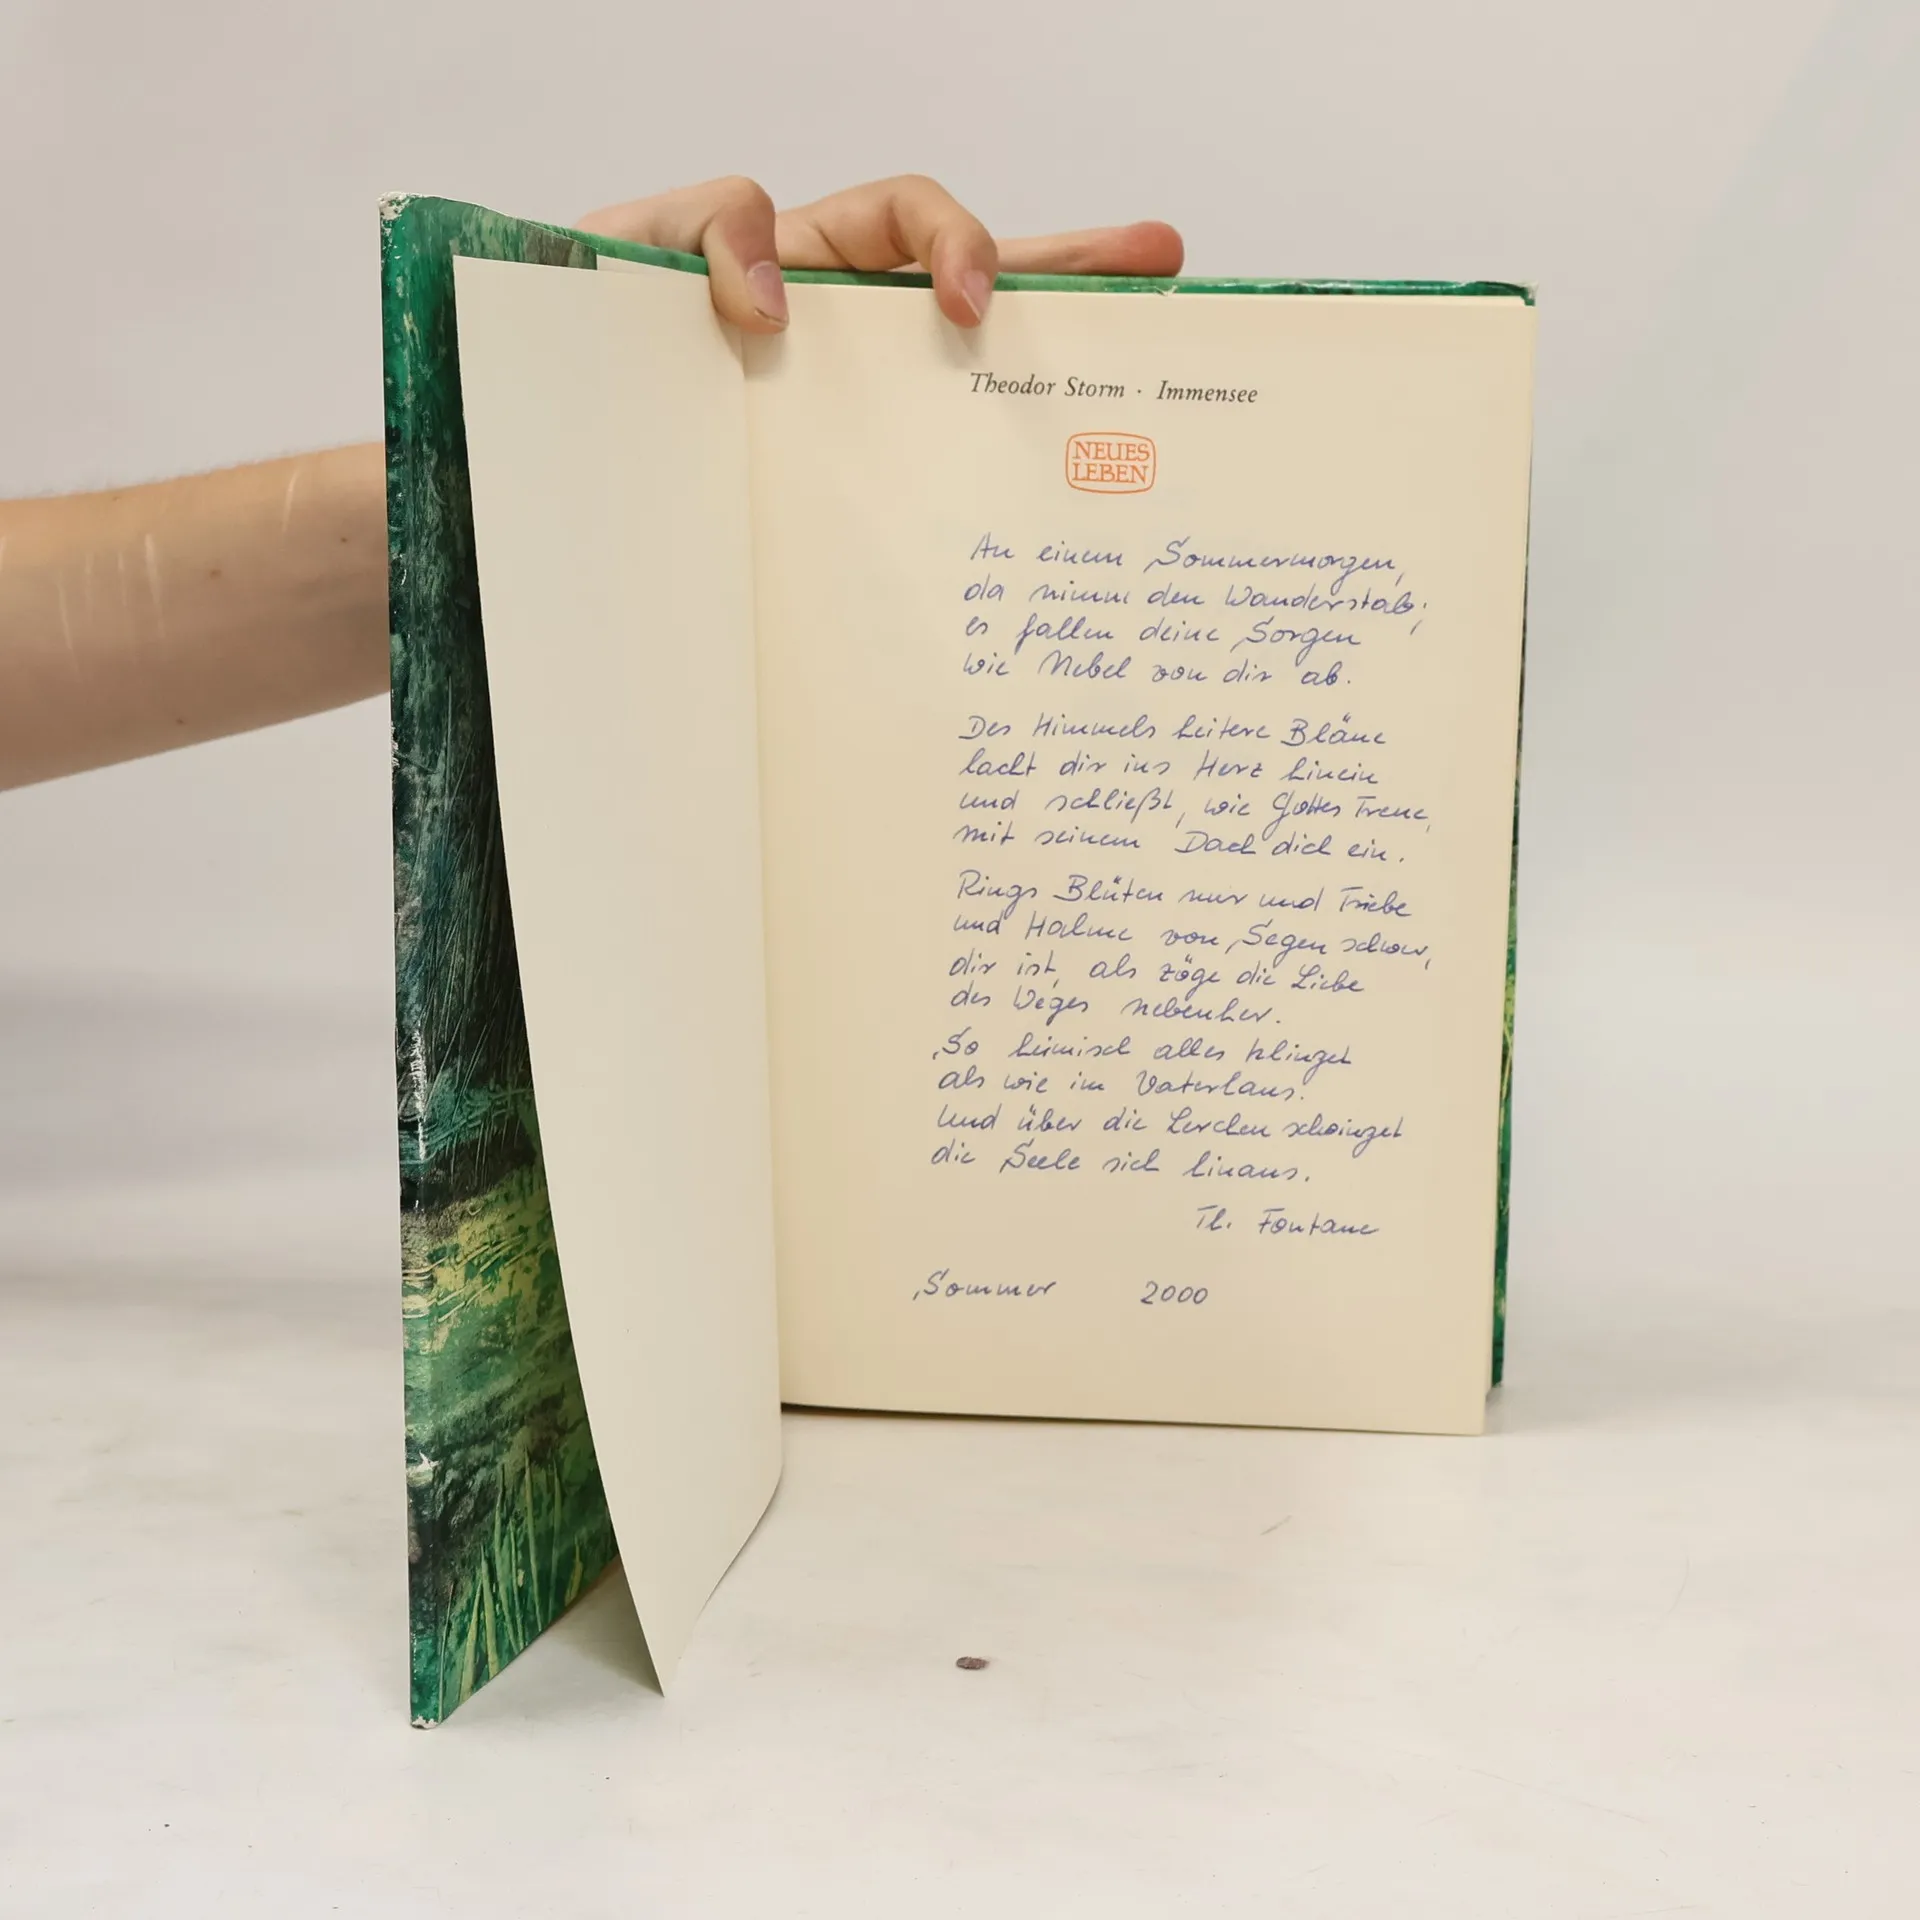 Theodor Storm · Immensee
NEUES
LEBEN
An einem Sommermorgen,
da nimm den Wanderstab;
es fallen deine Sorgen
wie Nebel von dir ab.
Des Himmels heitere Bläue
lacht dir ins Herz hinein
und schließt, wie Gottes Treue,
mit seinem Dach dich ein.
Rings Blüten nur und Triebe
und Halme von Segen schwer,
dir ist, als zöge die Liebe
des Weges nebenher.
So heimisch alles klinget
als wie im Vaterhaus.
Und über die Lerchen schwinget
die Seele sich hinaus.
Th. Fontane
Sommer 2000